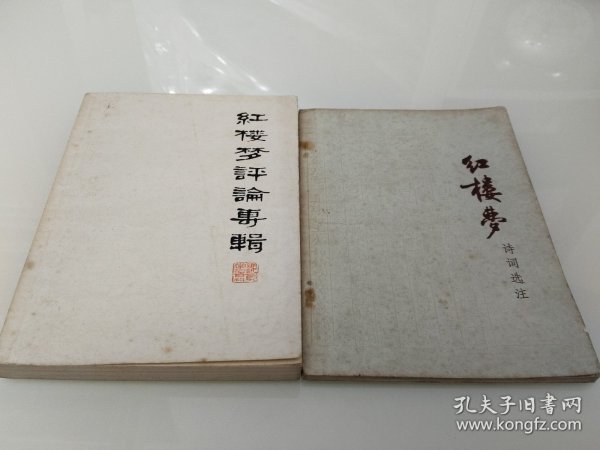 紅楼梦評論專輯
红楼夢
诗词选注
孔夫子旧书网
www.kongfz.com